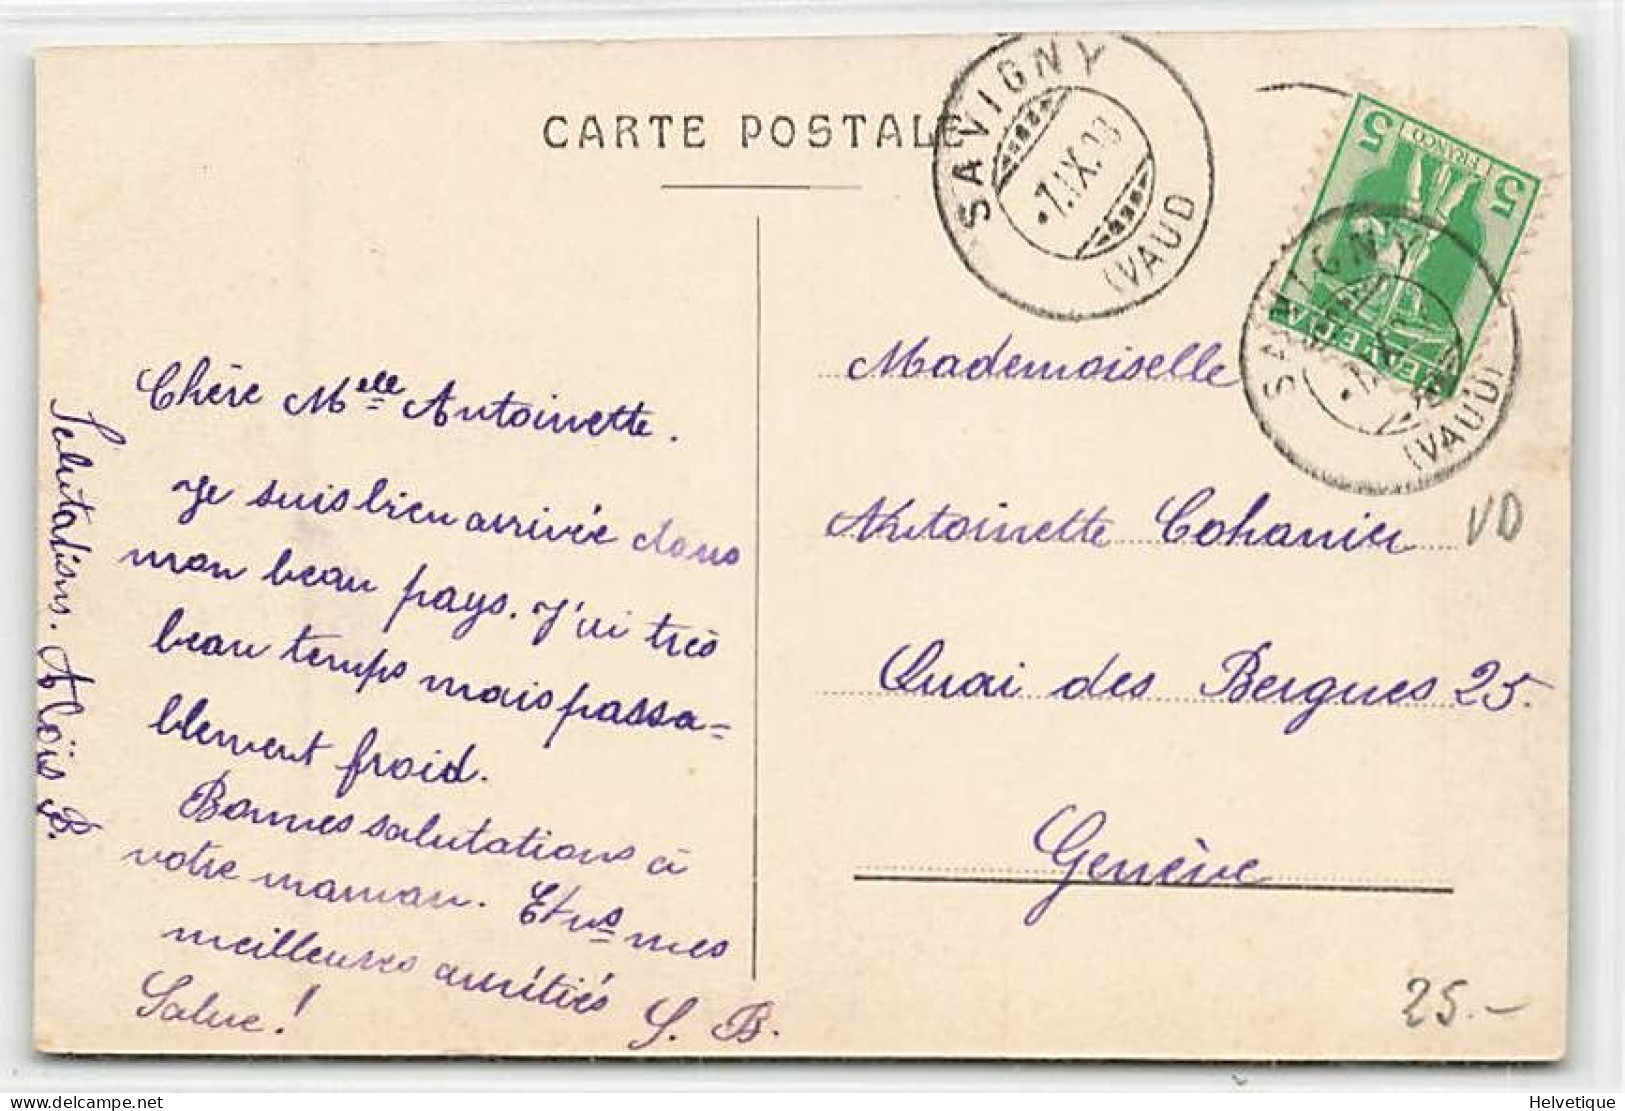 CARTE POSTALE
SAVIGNY
7.IX.
(VAUD)
5 FRANCO 5
SAVIGNY
(VAUD)
Chère Melle Antoinette.
Je suis bien arrivée dans
mon beau pays. J'ai très
beau temps mais passa=
blement froid.
Bonnes salutations à
votre maman. Et vs mes
meilleures amitiés
Salue! S. B.
Salutations. Aloïs B.
Mademoiselle
Antoinette Cohanier
VD
Quai des Bergues 25.
Genève
25.-
delcampe.net
Helvetique